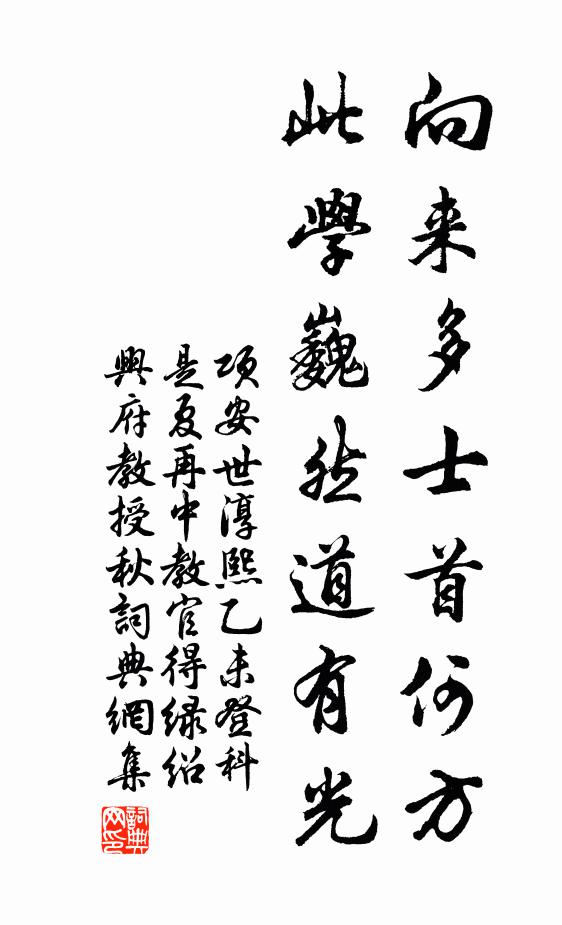 向来多士首何方
此學巍然道有光
项安世淳熙乙未登科
是夏再中教官得绿绍
興府教授秋詞典網集
詞典网印